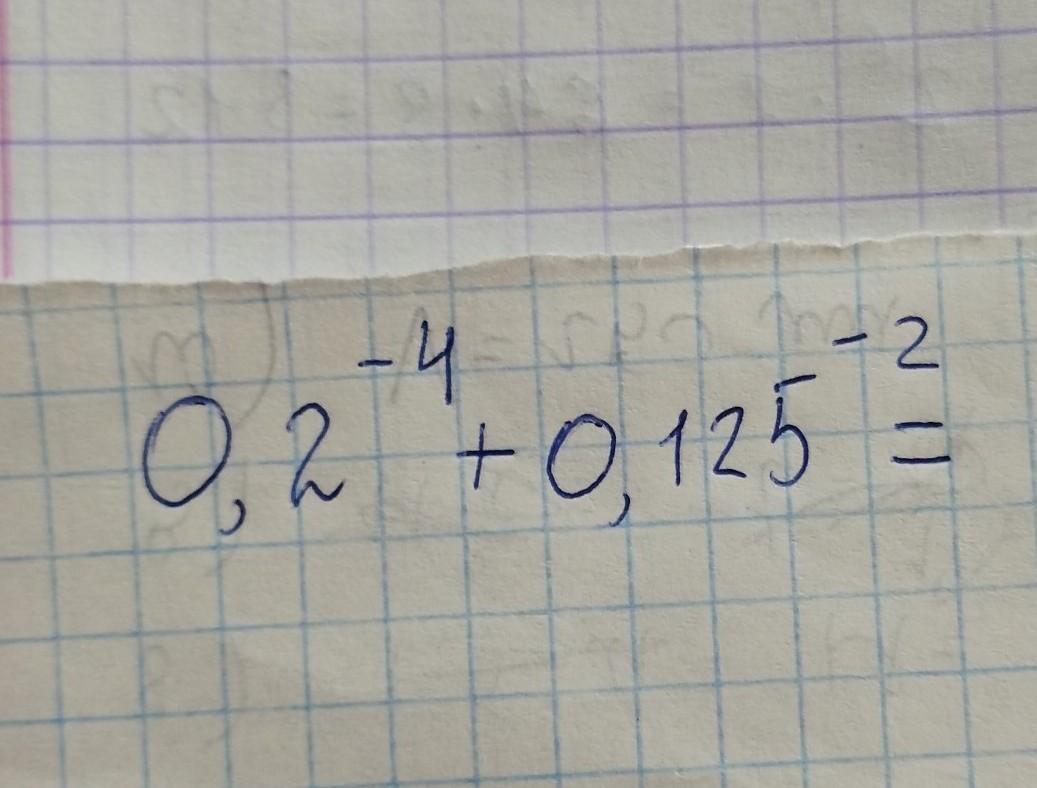 0,2⁻⁴ + 0,125⁻² =